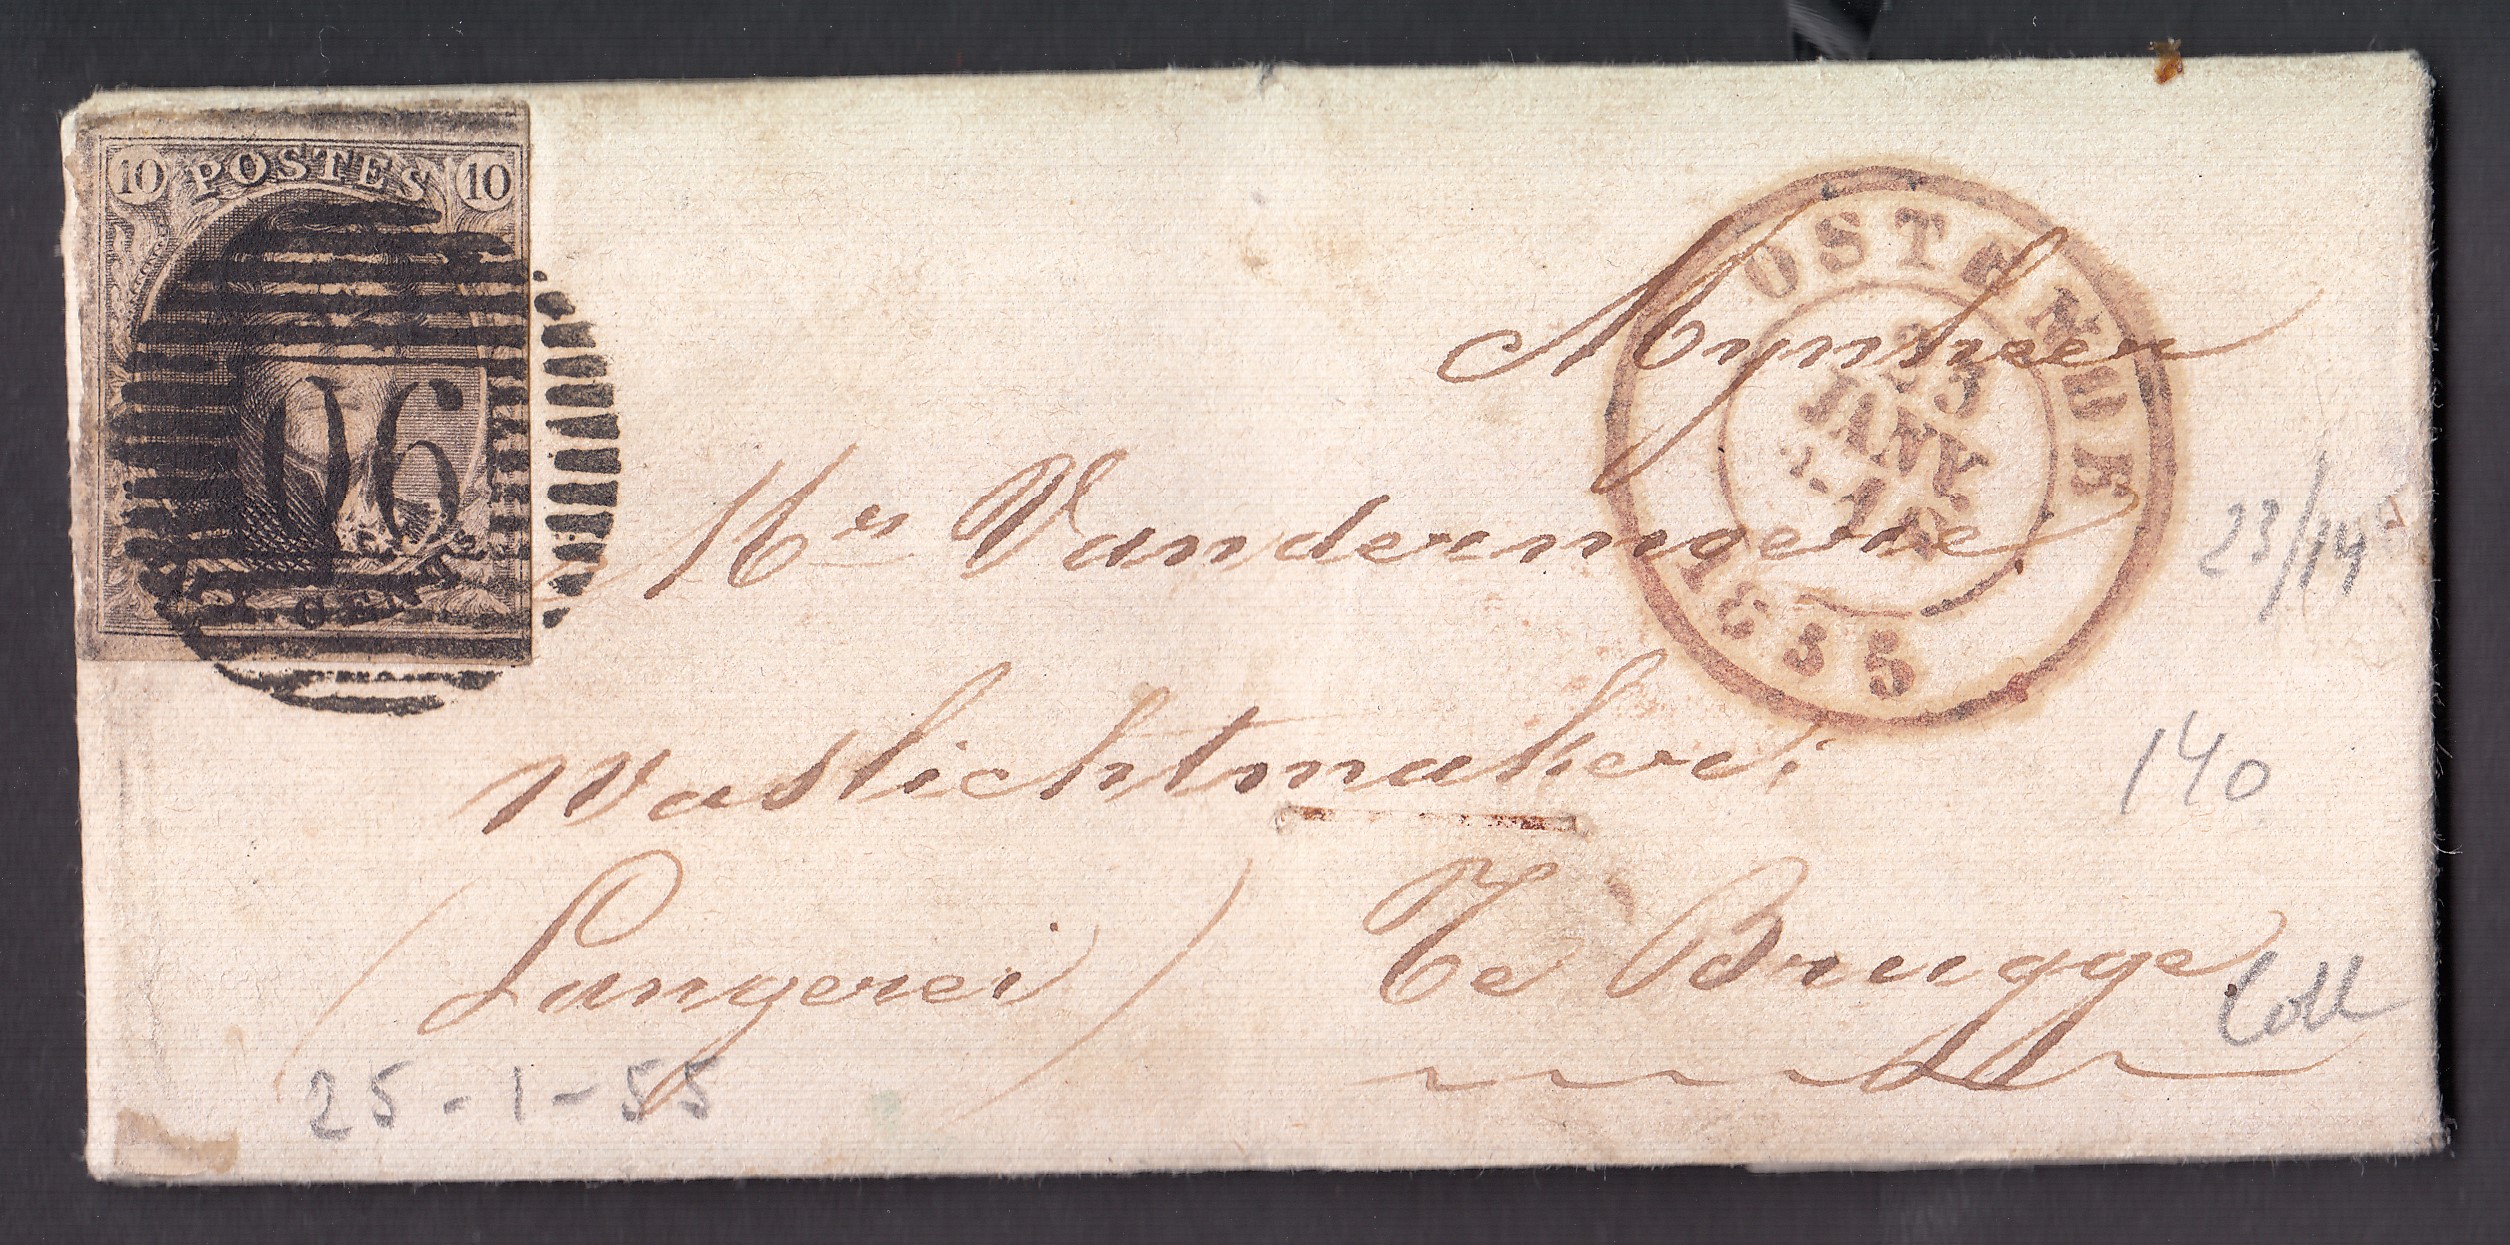 10 POSTES 10
96
CENT
OSTENDE
JANV
1855
Mynheer
Mr Vandermoere
Waslichtmaker.
(Langerei) Te Brugge.
23/14
140
Coll
25-1-55